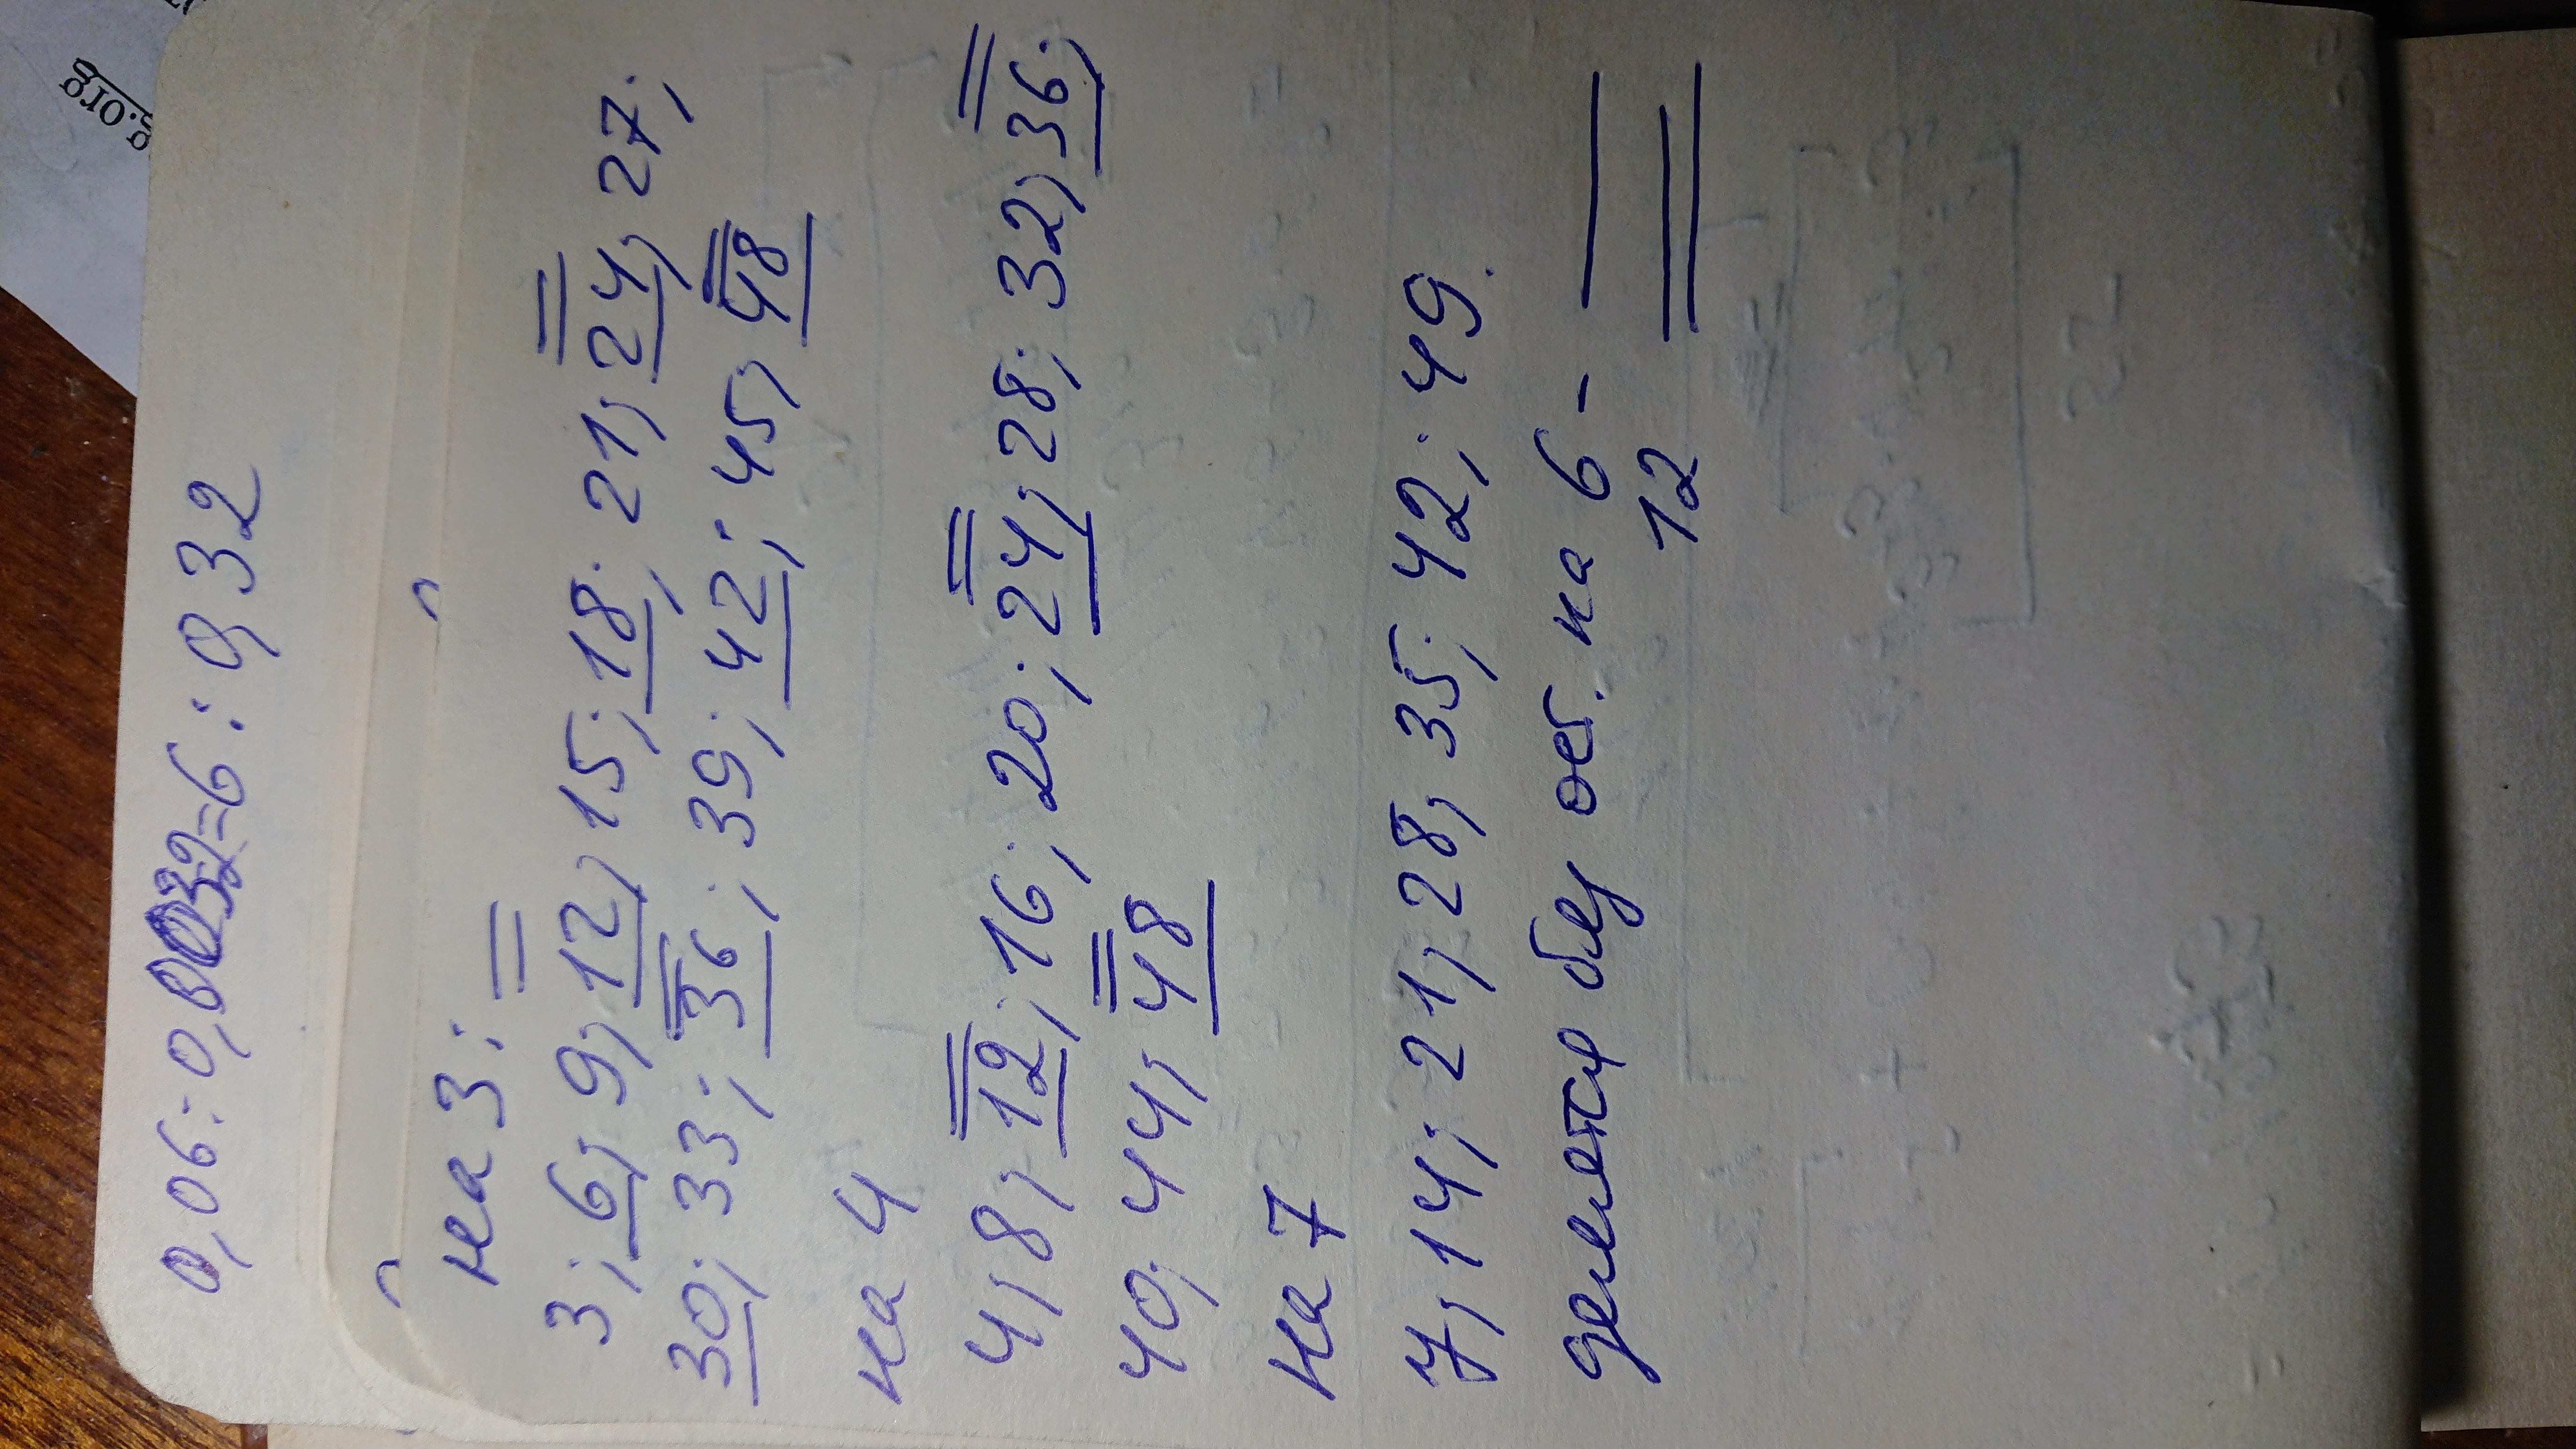 0,06:0,0032=6:0,32
на 3:
3; 6; 9; 12; 15; 18; 21; 24; 27;
30; 33; 36; 39; 42; 45; 48
на 4
4; 8; 12; 16; 20; 24; 28; 32; 36;
40; 44; 48
на 7
7; 14; 21; 28; 35; 42; 49.
делется без ост. на 6 -
12
g.org